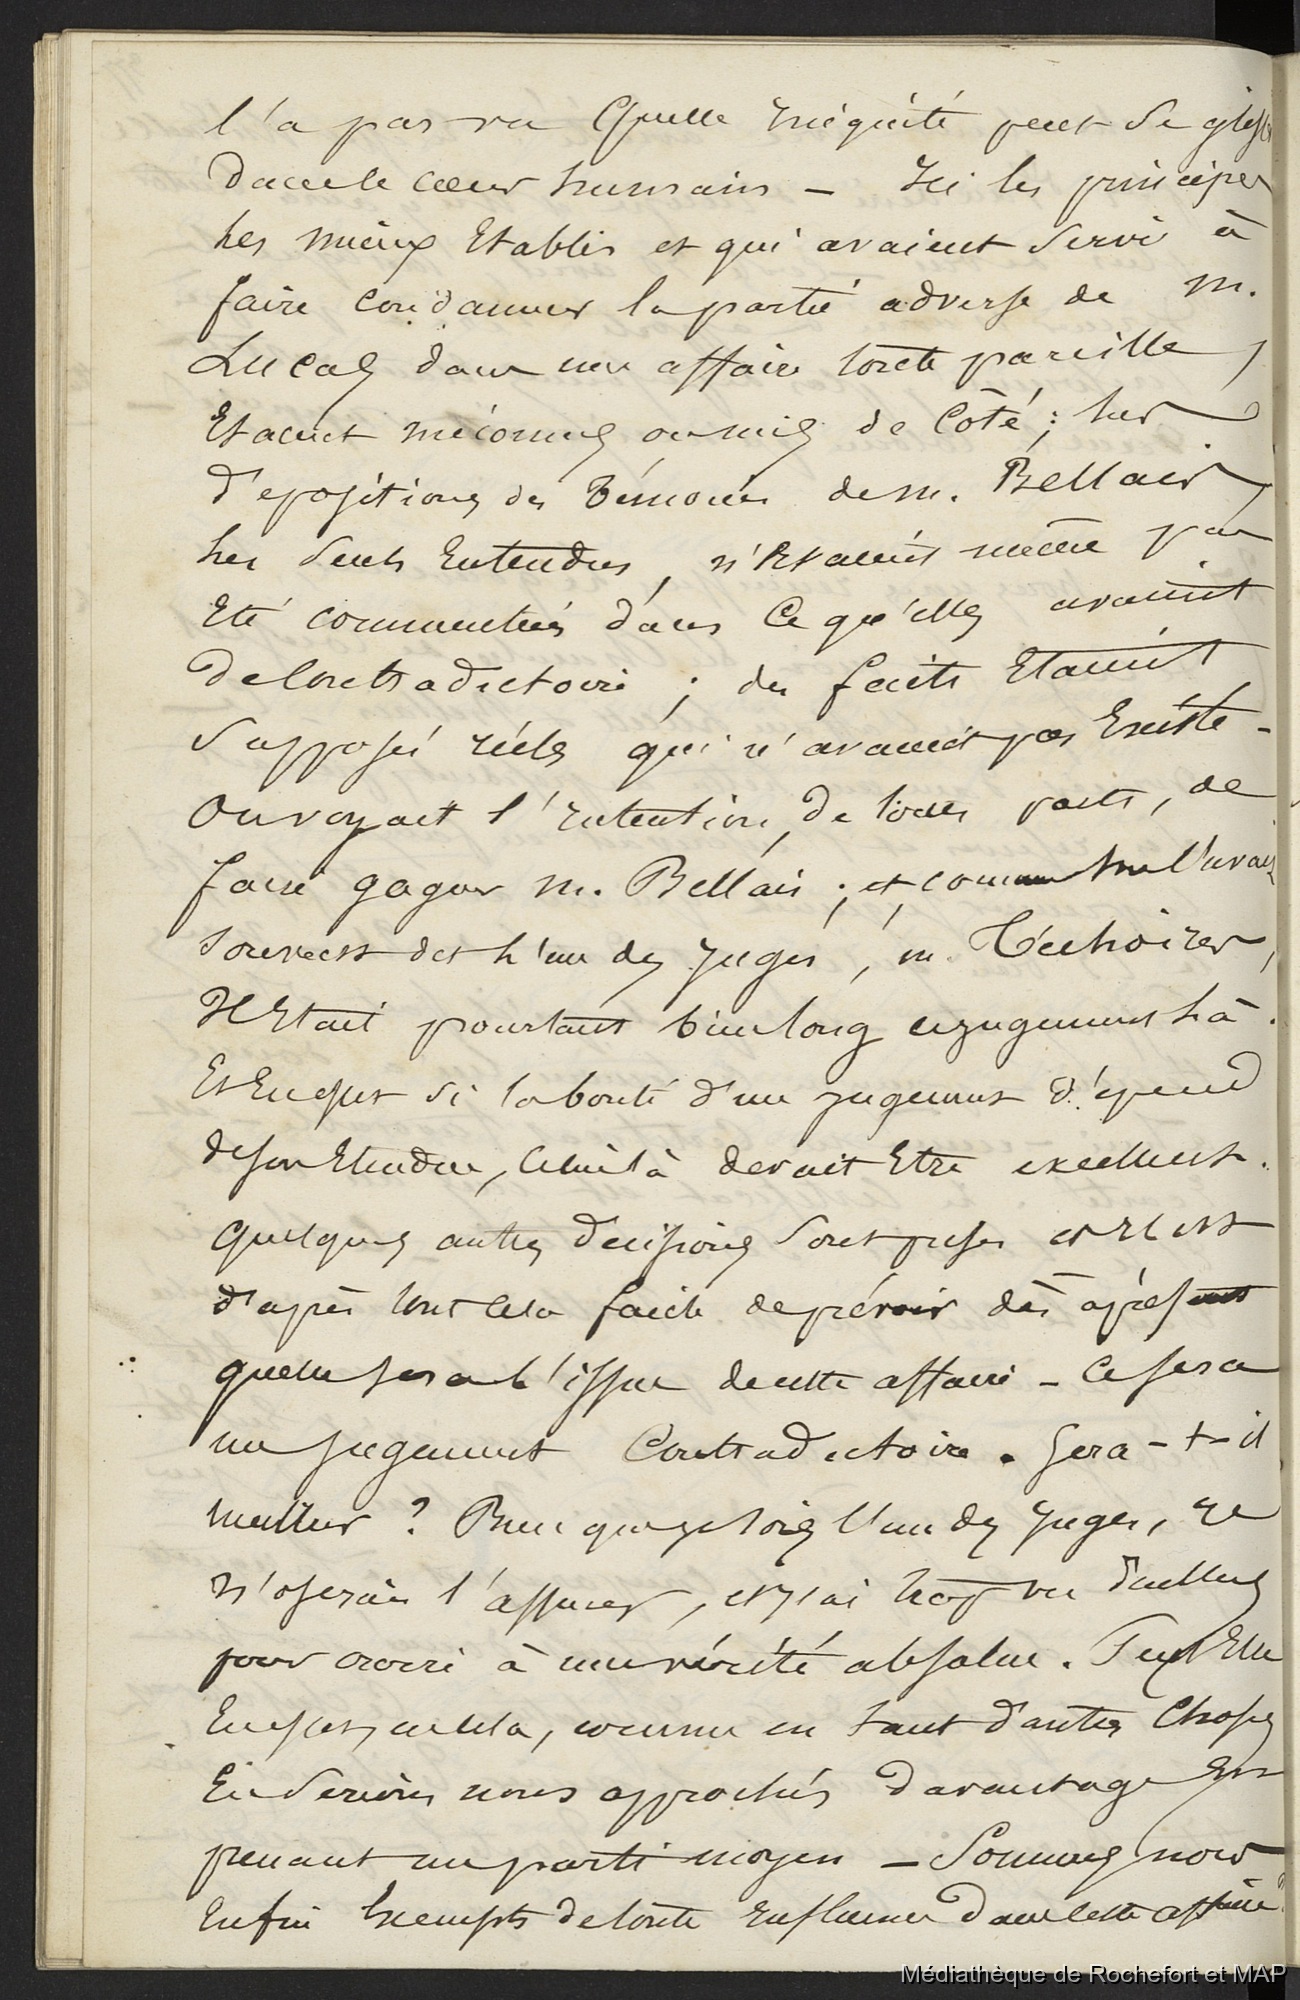 l'a pas vu quelle iniquité peut se glisser
dans le coeur humain – Ici les principes
les mieux Etablis et qui avaient servi à
faire condamner la partie adverse de M.
Lucas dans une affaire toute pareille,
Etaient méconnus ou mis de côté ; les
dépositions des témoins de M. Bellais,
les seuls Entendus, n'Etaient même pas
Eté commentées dans ce qu'elles avaient
de contradictoire ; des faits Etaient
supposés réels qui n'avaient pas Existé –
On voyait l'intention, de toutes parts, de
faire gagner M. Bellais ; et, comme l'avait
souvent dit l'un des juges, M.
Il Etait pourtant bien long ce jugement là.
Et En effet si la bonté d'un jugement dépend
de son Etendue, celui là devait Etre excellent.
Quelques autres décisions sont prises et il est
d'après tout cela facile de prévoir dès à présent
quelle sera l'issue de cette affaire – Ce sera
un jugement contradictoire. Sera-t-il
meilleur ? Bien que je sois l'un des juges, je
n'oserais l'assurer, et j'ai trop vu d'ailleurs
pour croire à une vérité absolue. Peut Etre
En effet, en cela, comme en tant d'autres choses
En serions nous approchés davantage En
prenant un parti moyen – Sommes nous
Enfin Exempts de toute influence dans cette affaire
Médiathèque de Rochefort et MAP